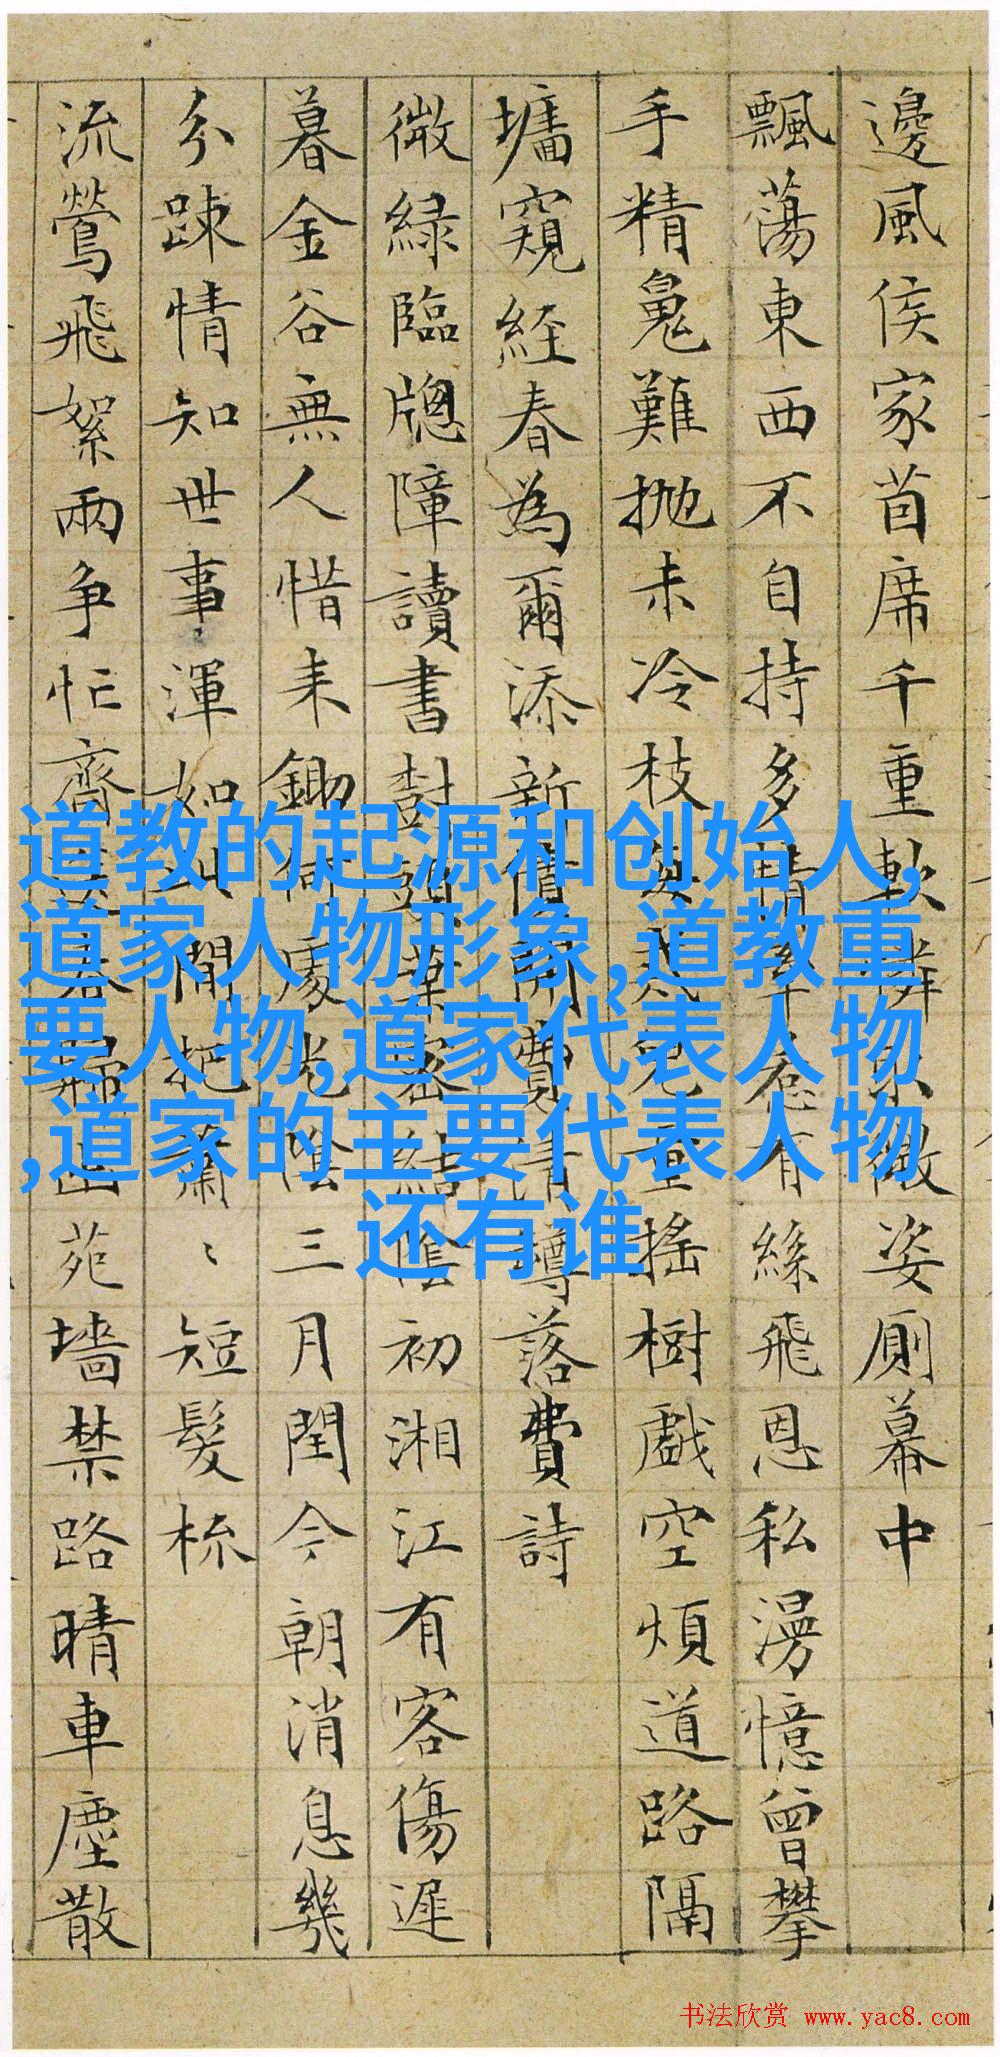 邊風侯家茵席千重軟
姿厠幕中
飄蕩東西不自持多情
有絲飛恩私漫憶曾攀
手精䰟難抛未冷枝
重搖樹戲空煩道路隔
墉窺経春為爾添新
落費詩
微緑臨牕障讀書
結陰初湘江有客傷遲
暮金谷無人惜耒鋤
陰三月閏今朝消息幾
分踈情知世事渾如
閒把蕭〻短髮梳
流鶯飛絮兩争忙齊
苑墻禁路晴車塵散
道教的起源和创始人,
道家人物形象,道教重
要人物,道家代表人物
,道家的主要代表人物
还有谁
书法欣赏 www.yac8.com